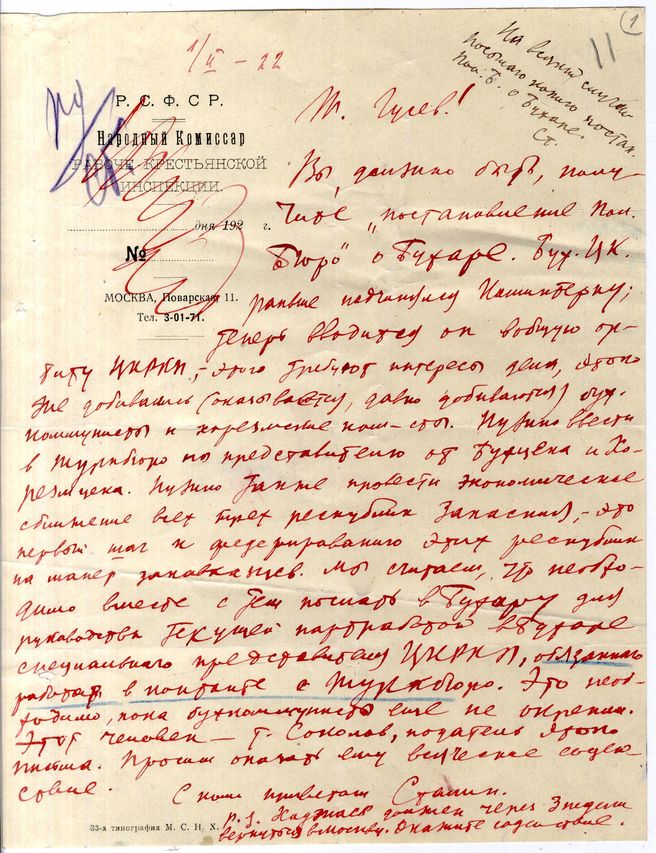 1
11
1/II – 22
На всякий случай
посылаю копию постан.
Пол. Б. о
Бухаре.
Ст.
Р. С. Ф. С Р.
Народный Комиссар
РАБОЧЕ-КРЕСТЬЯНСКОЙ
ИНСПЕКЦИИ.
дня 192 г.
№
МОСКВА, Поварская 11.
Тел. 3-01-71.
Т. Гусев!
Вы, должно быть, полу-
чите „постановление Пол.
Бюро" о Бухаре. Бух. ЦК.
раньше подчинялся Коминтерну;
теперь вводится он в общую ор-
биту ЦКРКП, – этого требуют интересы дела, этого
же добивались (оказывается, давно добиваются) бух.
коммунисты и хорезмские ком-сты. Нужно ввести
в Туркбюро по представителю от Бухцека и Хо-
резмцека. Нужно также провести экономическое
сближение всех трех республик Закаспия, – это
первый шаг к федерированию этих республик
на манер закавказцев. Мы считаем, что необхо-
димо вместе с тем послать в Бухару для
руководства текущей партработой в Бухаре
специального представителя ЦКРКП, обязанного
работать в контакте с Туркбюро. Это необ-
ходимо, пока бухкоммунисты еще не окрепли.
Этот человек – т. Соколов, податель этого
письма. Просим оказать ему всяческое содей-
ствие.
С ком. приветом Сталин.
P. S. Ходжаев должен через 3 недели
вернуться в Москву. Окажите содействие.
33-я типография М. С. Н. Х.